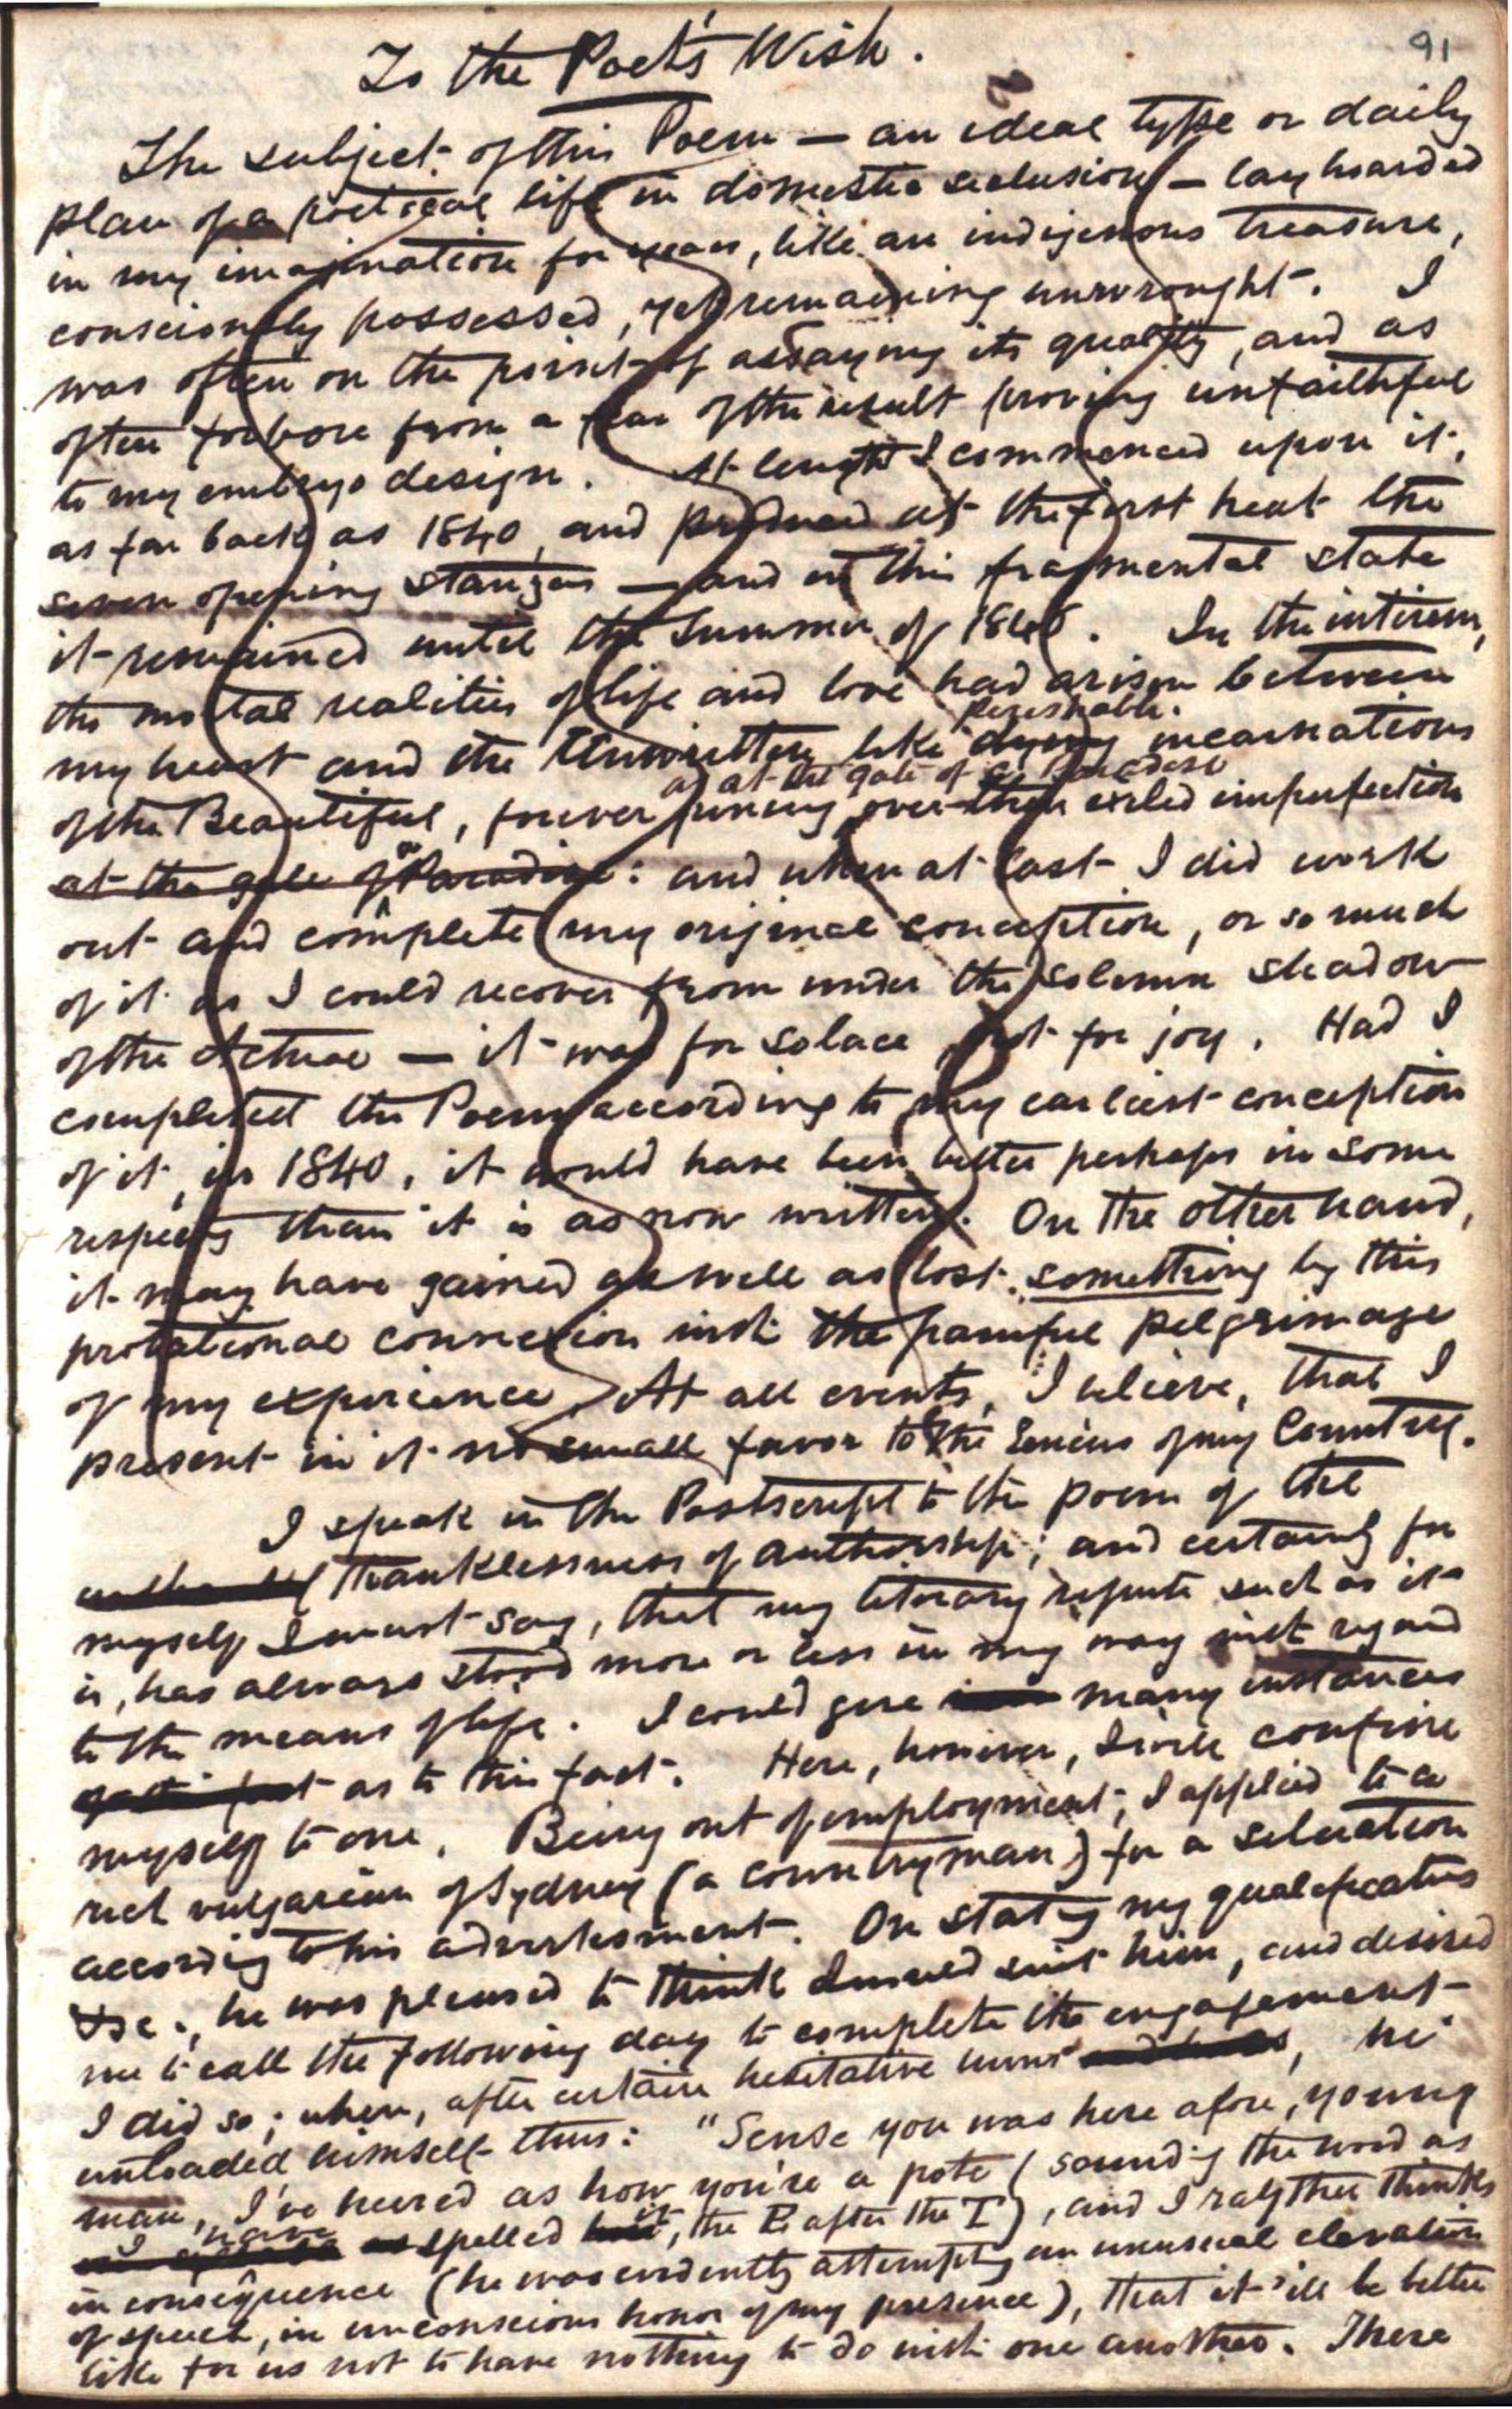 91
To the Poet's Wish.
The subject of this Poem — an ideal type or daily
plan of a poetical life in domestic seclusion — lay hoarded
in my imagination for years, like an indigenous treasure,
consciously possessed, yet remaining unwrought. I
was often on the point of assaying its quality, and as
often forbore from a fear of the result proving unfaithful
to my embryo design. At length I commenced upon it,
as far back as 1840, and produced at the first heat the
seven opening stanzas — and in this fragmental state
it remained until the Summer of 1846. In the interim,
the mortal realities of life and love had arisen between
perishable
my heart and the Unwritten, like dying incarnations
as at the gate of a Paradise
of the Beautiful, forever pining over their exiled imperfection
at the gate of a Paradise: and when at last I did work
out and complete my original conception, or so much
of it as I could recover from under the solemn shadow
of the Actual — it was for solace, not for joy. Had I
completed the Poem according to my earliest conception
of it, in 1840, it would have been better perhaps in some
respects than it is as now written. On the other hand,
it may have gained as well as lost something by this
probational connexion with the painful pilgrimage
of my experience. At all events, I believe, that I
present in it no small favor to the Genius of my Country.
I speak in the Postscript to the poem of the
thanklessness of authorship; and certainly for
myself I must say, that my literary repute such as it
is, has always stood more or less in my way with regard
to the means of life. I could give many instances
as to this fact. Here, however, I will confine
myself to one. Being out of employment, I applied to a
rich vulgarian of Sydney (a countryman) for a situation
according to his advertisement. On stating my qualifications
&c., he was pleased to think I would suit him, and desired
me to call the following day to complete the engagement.
I did so; when, after certain hesitative hums, he
unloaded himself thus: "Sense you was here afore, young
man, I've heered as how you're a pote (sounding the word as
I have spelled it, the E after the T), and I rayther thinks
in consequence (he was evidently attempting an unusual elevation
of speech, in unconscious honor of my presence), that it 'ill be better
like for us not to have nothing to do with one another. There